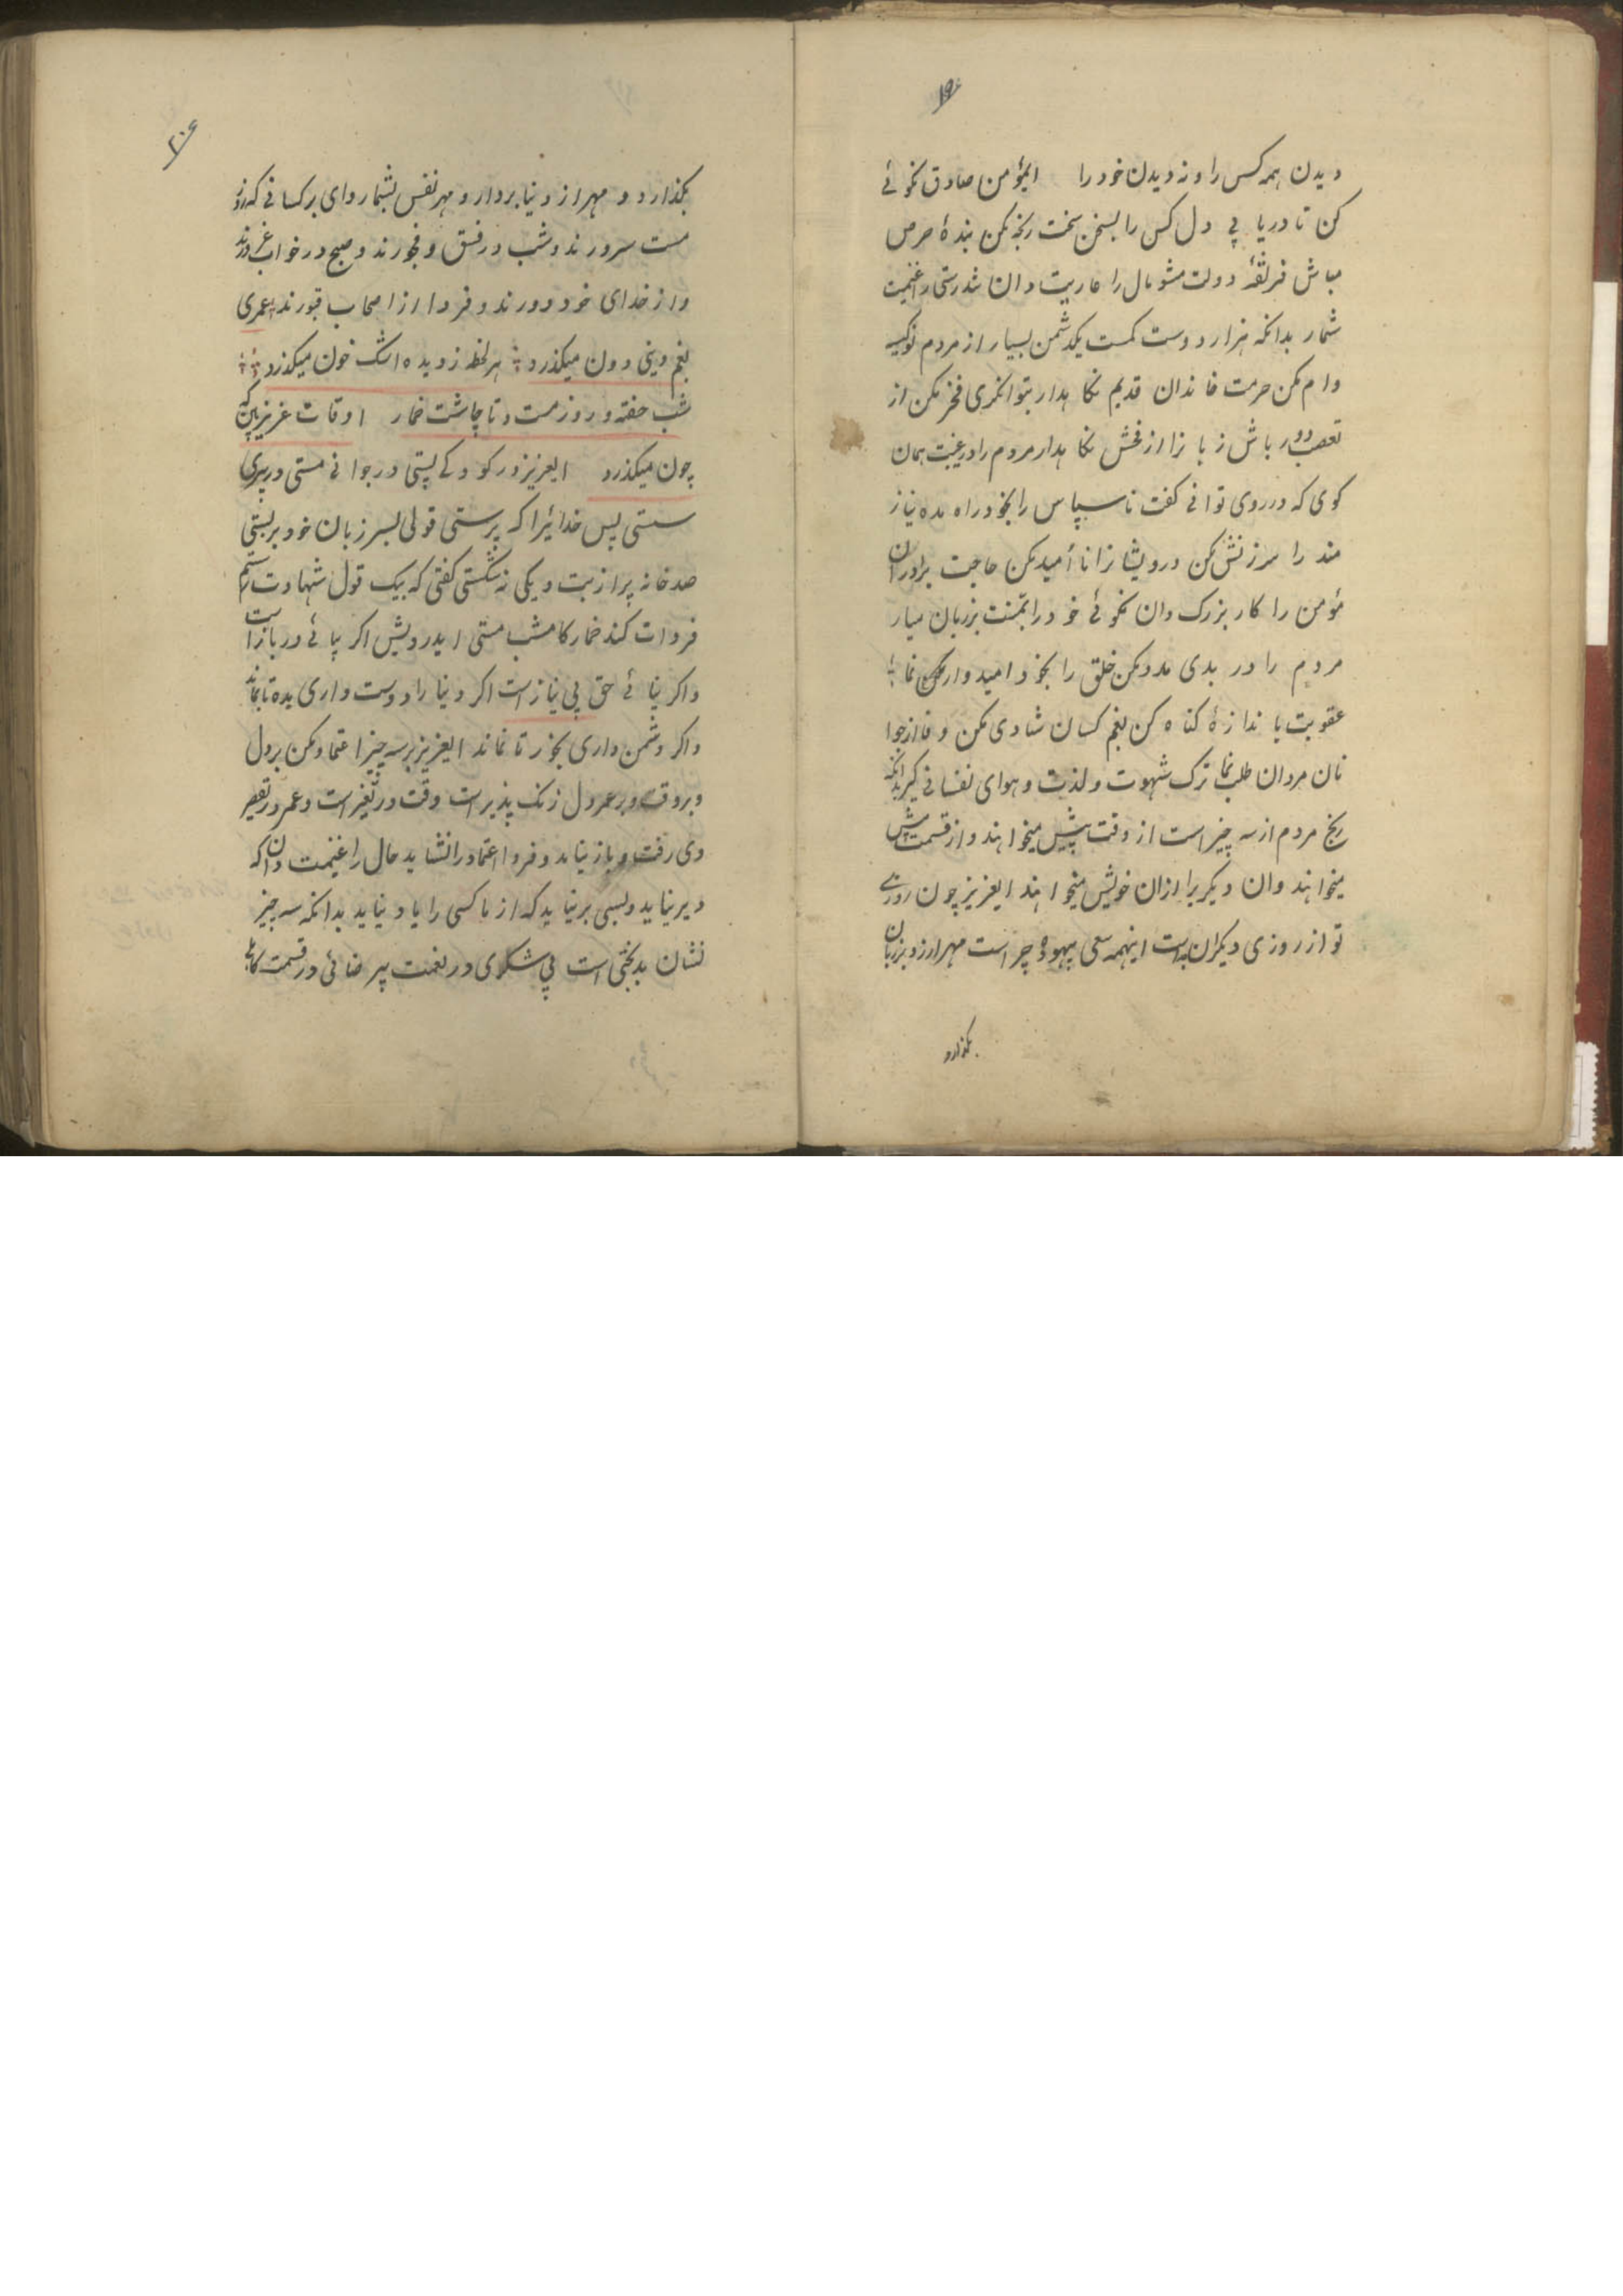 ۱۹
دیدن همه کس را و نه دیدن خود را ایمؤمن صادق نکوئے
کن تا دریا پی دل کس را بسخن سخت رنجه مکن بندهٔ حرص
مباش فریفتهٔ دولت مشو مال را عاریت دان تندرستی را غنیمت
شمار بدانکه هزار دوست کمست یکدشمن بسیار از مردم نوکیسه
وام مکن حرمت خاندان قدیم نکاهدار بتوانکری فخر مکن از
تعصب دور باش زبانرا از فحش نکاهدار مردم را در غیبت همان
کوی که در روی توانی کفت ناسپاس را بخود راه مده نیاز
مند را سرزنش مکن درویشانرا ناأمید مکن حاجت برادران
مؤمن را کار بزرک دان نکوئے خود را بمنت بر زبان میار
مردم را در بدی مدد مکن خلق را بخود امیدوار نما
عقوبت باندازهٔ کناه کن بغم کسان شادی مکن و فا از جوا
نان مردان طلب نما ترک شهوت و لذت و هوای نفسانی کیر بدانکه
رنج مردم از سه چیز است از وقت پیش میخواهند و از قسمت بیش
میخواهند و ان دیکریرا از ان خویش میخواهند ایعزیز چون روزے
تو از روزی دیکران جداست اینهمه سعی بیهوده چراست مهر از زر و بزبان
بکذارد
۲۰
بکذارد و مهر از دنیا بردار و مهر نفس بشمار وای بر کسانی که روز
مست سرورند و شب در فسق و فجورند و صبح در خواب غرورند
و از خدای خود دورند و فردا از اصحاب قبورند عمری
بغم دینی دون میکذرد هر لحظه ز دیده اشک خون میکذرد
شب خفته و روز مست و تا چاشت خمار اوقات عزیز بین که
چون میکذرد ایعزیز در کودکے پستی در جوانی مستی در پیری
سستی پس خدائیرا که پرستی قولی بسر زبان خود بر بستی
صد خانه پر از بت و یکی نشکستی کفتی که بیک قول شهادت رستم
فردات کند خمار کامشب مستی ایدرویش اکر بیائے در باز است
و اکر نیائے حق بی نیاز است اکر دنیا را دوست داری بده تا بماند
و اکر دشمن داری بخور تا نماند ایعزیز بر سه چیز اعتماد مکن بر دل
و بر وقت و بر عمر دل زنک پذیر است وقت در تغیر است و عمر در تقصیر
دی رفت و باز نیاید و فردا اعتماد را نشاید حال را غنیمت دان که
دیر نیاید و بسی بر نیاید که از ما کسی را یاد نیاید بدانکه سه چیز
نشان بدبختی است بی شکری در نعمت بیرضائی در قسمت